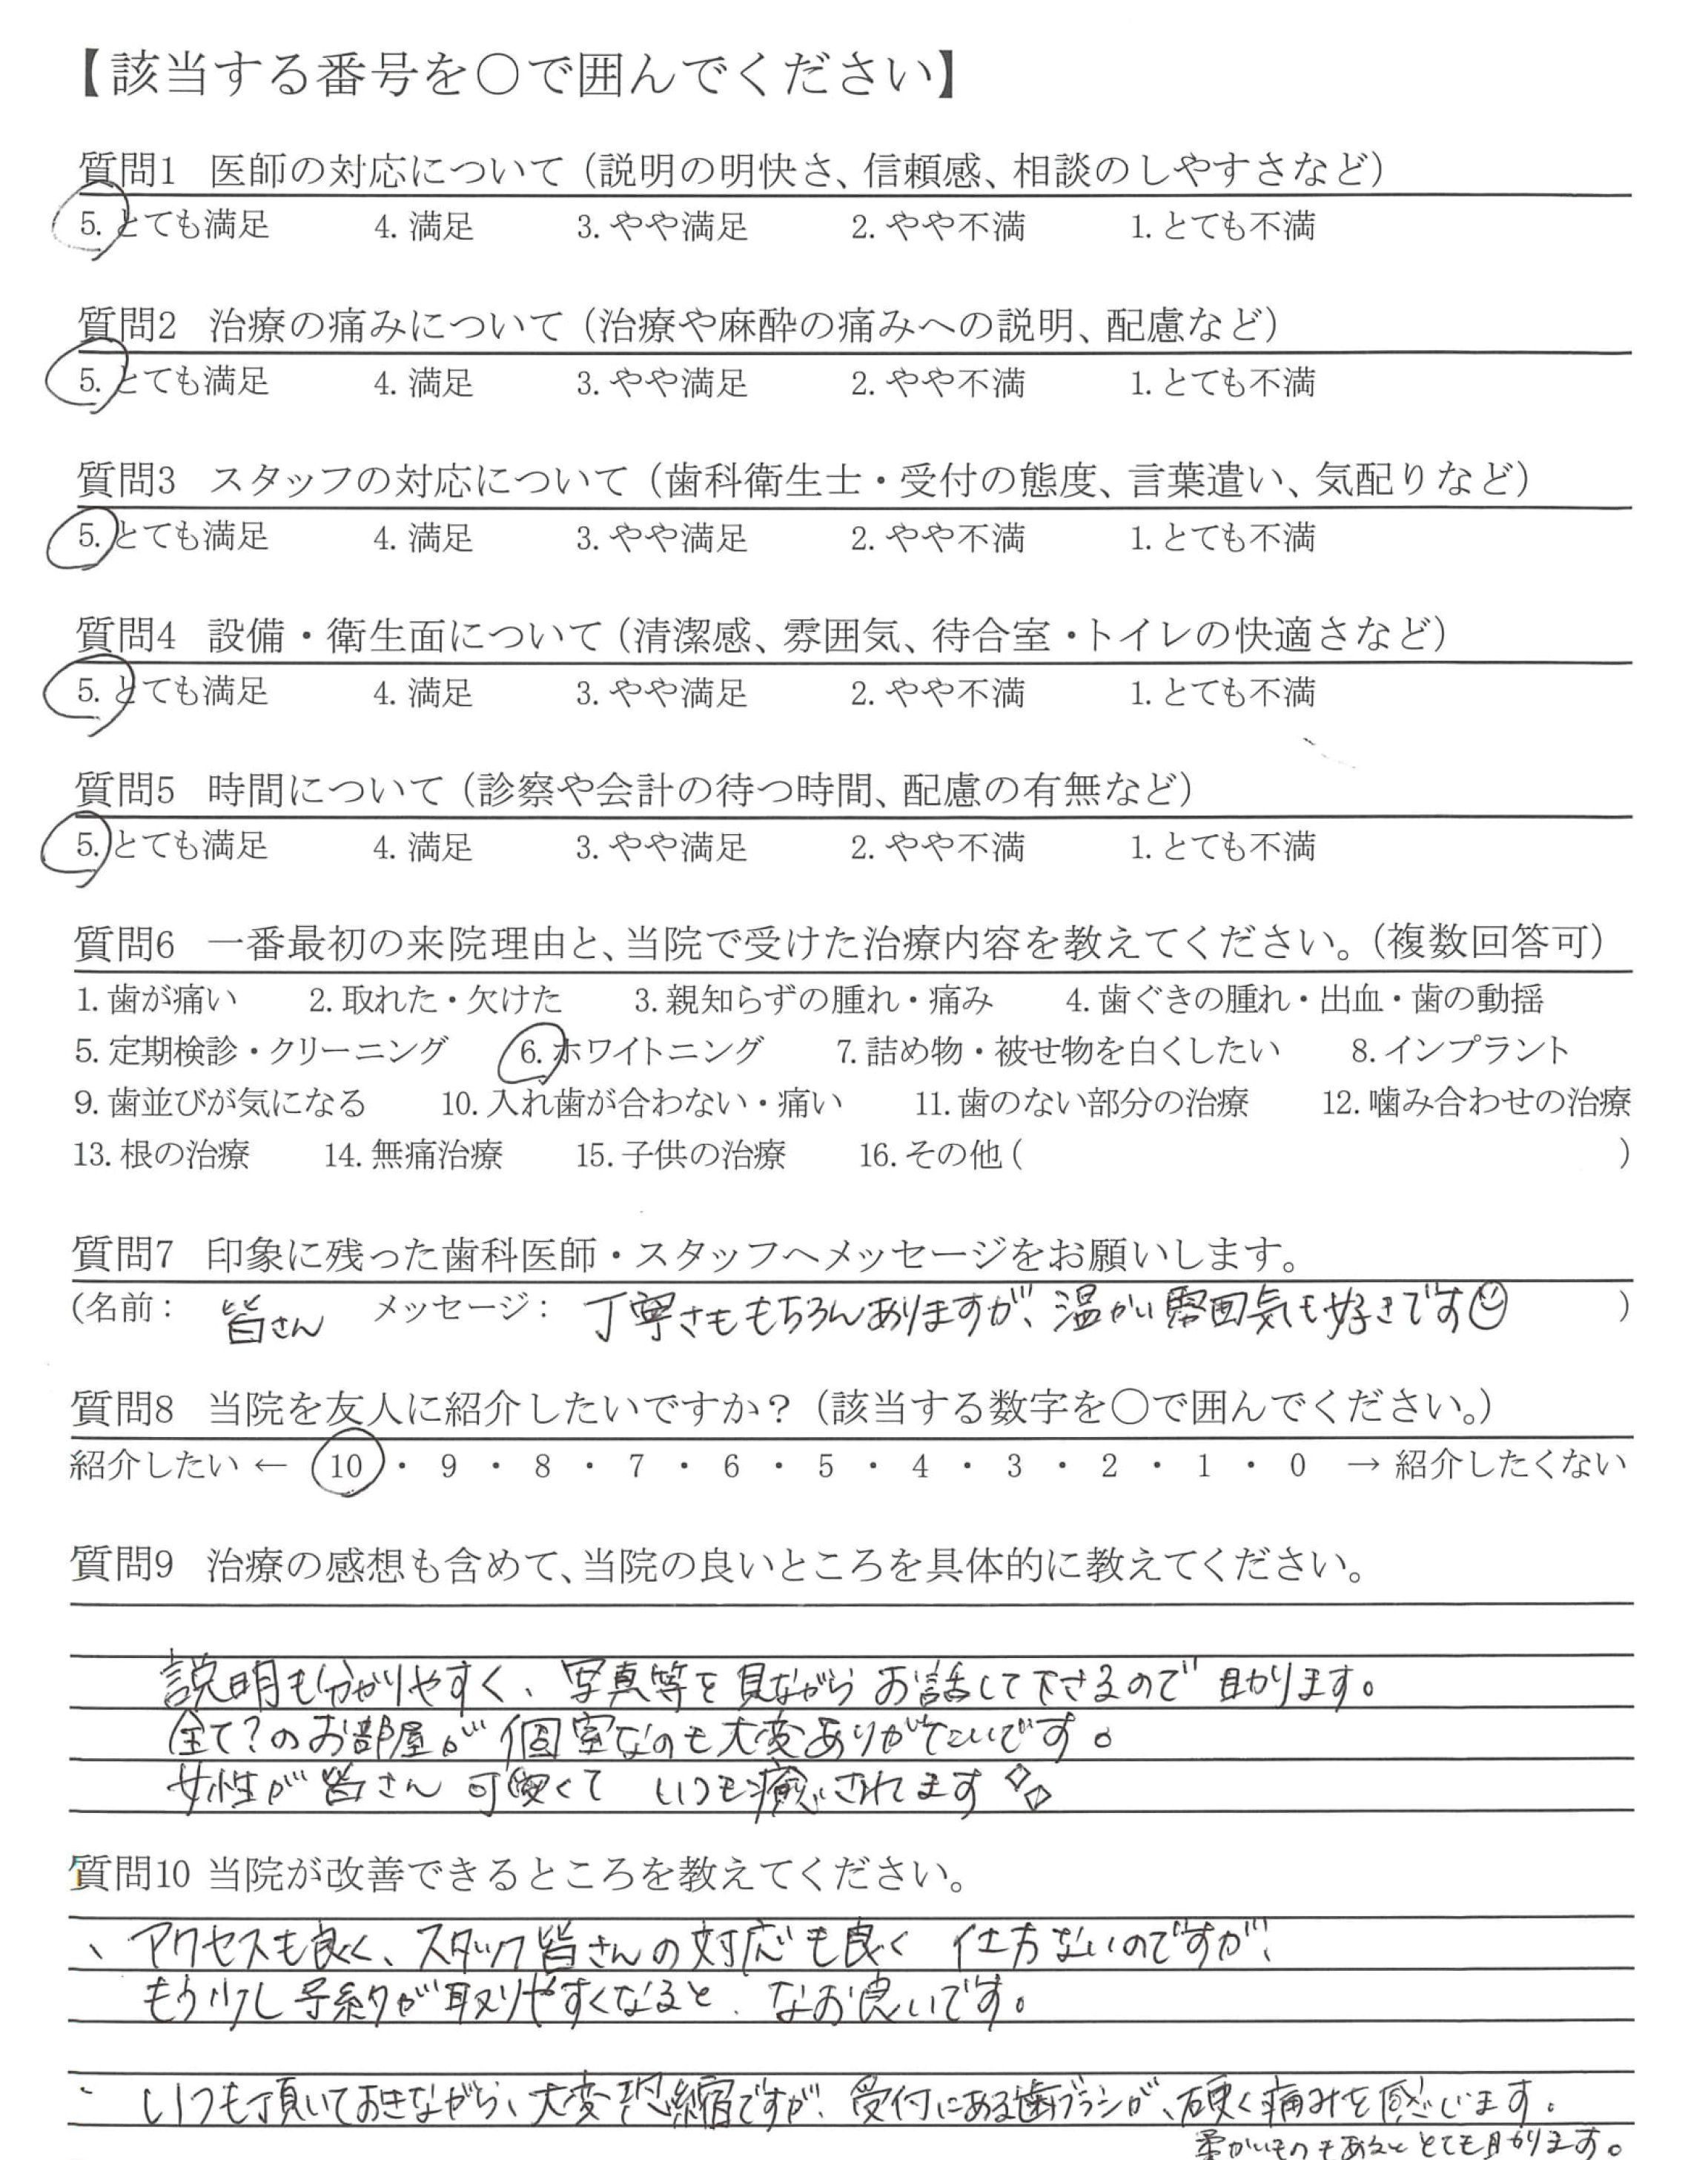 【該当する番号を〇で囲んでください】
質問1 医師の対応について（説明の明快さ、信頼感、相談のしやすさなど）
5. とても満足 4. 満足 3. やや満足 2. やや不満 1. とても不満
質問2 治療の痛みについて（治療や麻酔の痛みへの説明、配慮など）
5. とても満足 4. 満足 3. やや満足 2. やや不満 1. とても不満
質問3 スタッフの対応について（歯科衛生士・受付の態度、言葉遣い、気配りなど）
5. とても満足 4. 満足 3. やや満足 2. やや不満 1. とても不満
質問4 設備・衛生面について（清潔感、雰囲気、待合室・トイレの快適さなど）
5. とても満足 4. 満足 3. やや満足 2. やや不満 1. とても不満
質問5 時間について（診察や会計の待つ時間、配慮の有無など）
5. とても満足 4. 満足 3. やや満足 2. やや不満 1. とても不満
質問6 一番最初の来院理由と、当院で受けた治療内容を教えてください。（複数回答可）
1. 歯が痛い 2. 取れた・欠けた 3. 親知らずの腫れ・痛み 4. 歯ぐきの腫れ・出血・歯の動揺
5. 定期検診・クリーニング 6. ホワイトニング 7. 詰め物・被せ物を白くしたい 8. インプラント
9. 歯並びが気になる 10. 入れ歯が合わない・痛い 11. 歯のない部分の治療 12. 噛み合わせの治療
13. 根の治療 14. 無痛治療 15. 子供の治療 16. その他 ( )
質問7 印象に残った歯科医師・スタッフへメッセージをお願いします。
(名前： 皆さん メッセージ： 丁寧さももちろんありますが、温かい雰囲気も好きです☺ )
質問8 当院を友人に紹介したいですか？（該当する数字を〇で囲んでください。）
紹介したい ← 10 ・ 9 ・ 8 ・ 7 ・ 6 ・ 5 ・ 4 ・ 3 ・ 2 ・ 1 ・ 0 → 紹介したくない
質問9 治療の感想も含めて、当院の良いところを具体的に教えてください。
説明も分かりやすく、写真等を見ながらお話して下さるので助かります。
全て？のお部屋が個室なのも大変ありがたいです。
女性が皆さん可愛くて いつも癒されてます
質問10 当院が改善できるところを教えてください。
、アクセスも良く、スタッフ皆さんの対応も良く 仕方ないのですが、
もう少し予約が取りやすくなると、なお良いです。
、いつも頂いておきながら、大変恐縮ですが、受付にある歯ブラシが、硬く痛みを感じます。
柔かいものもあると とても助かります。